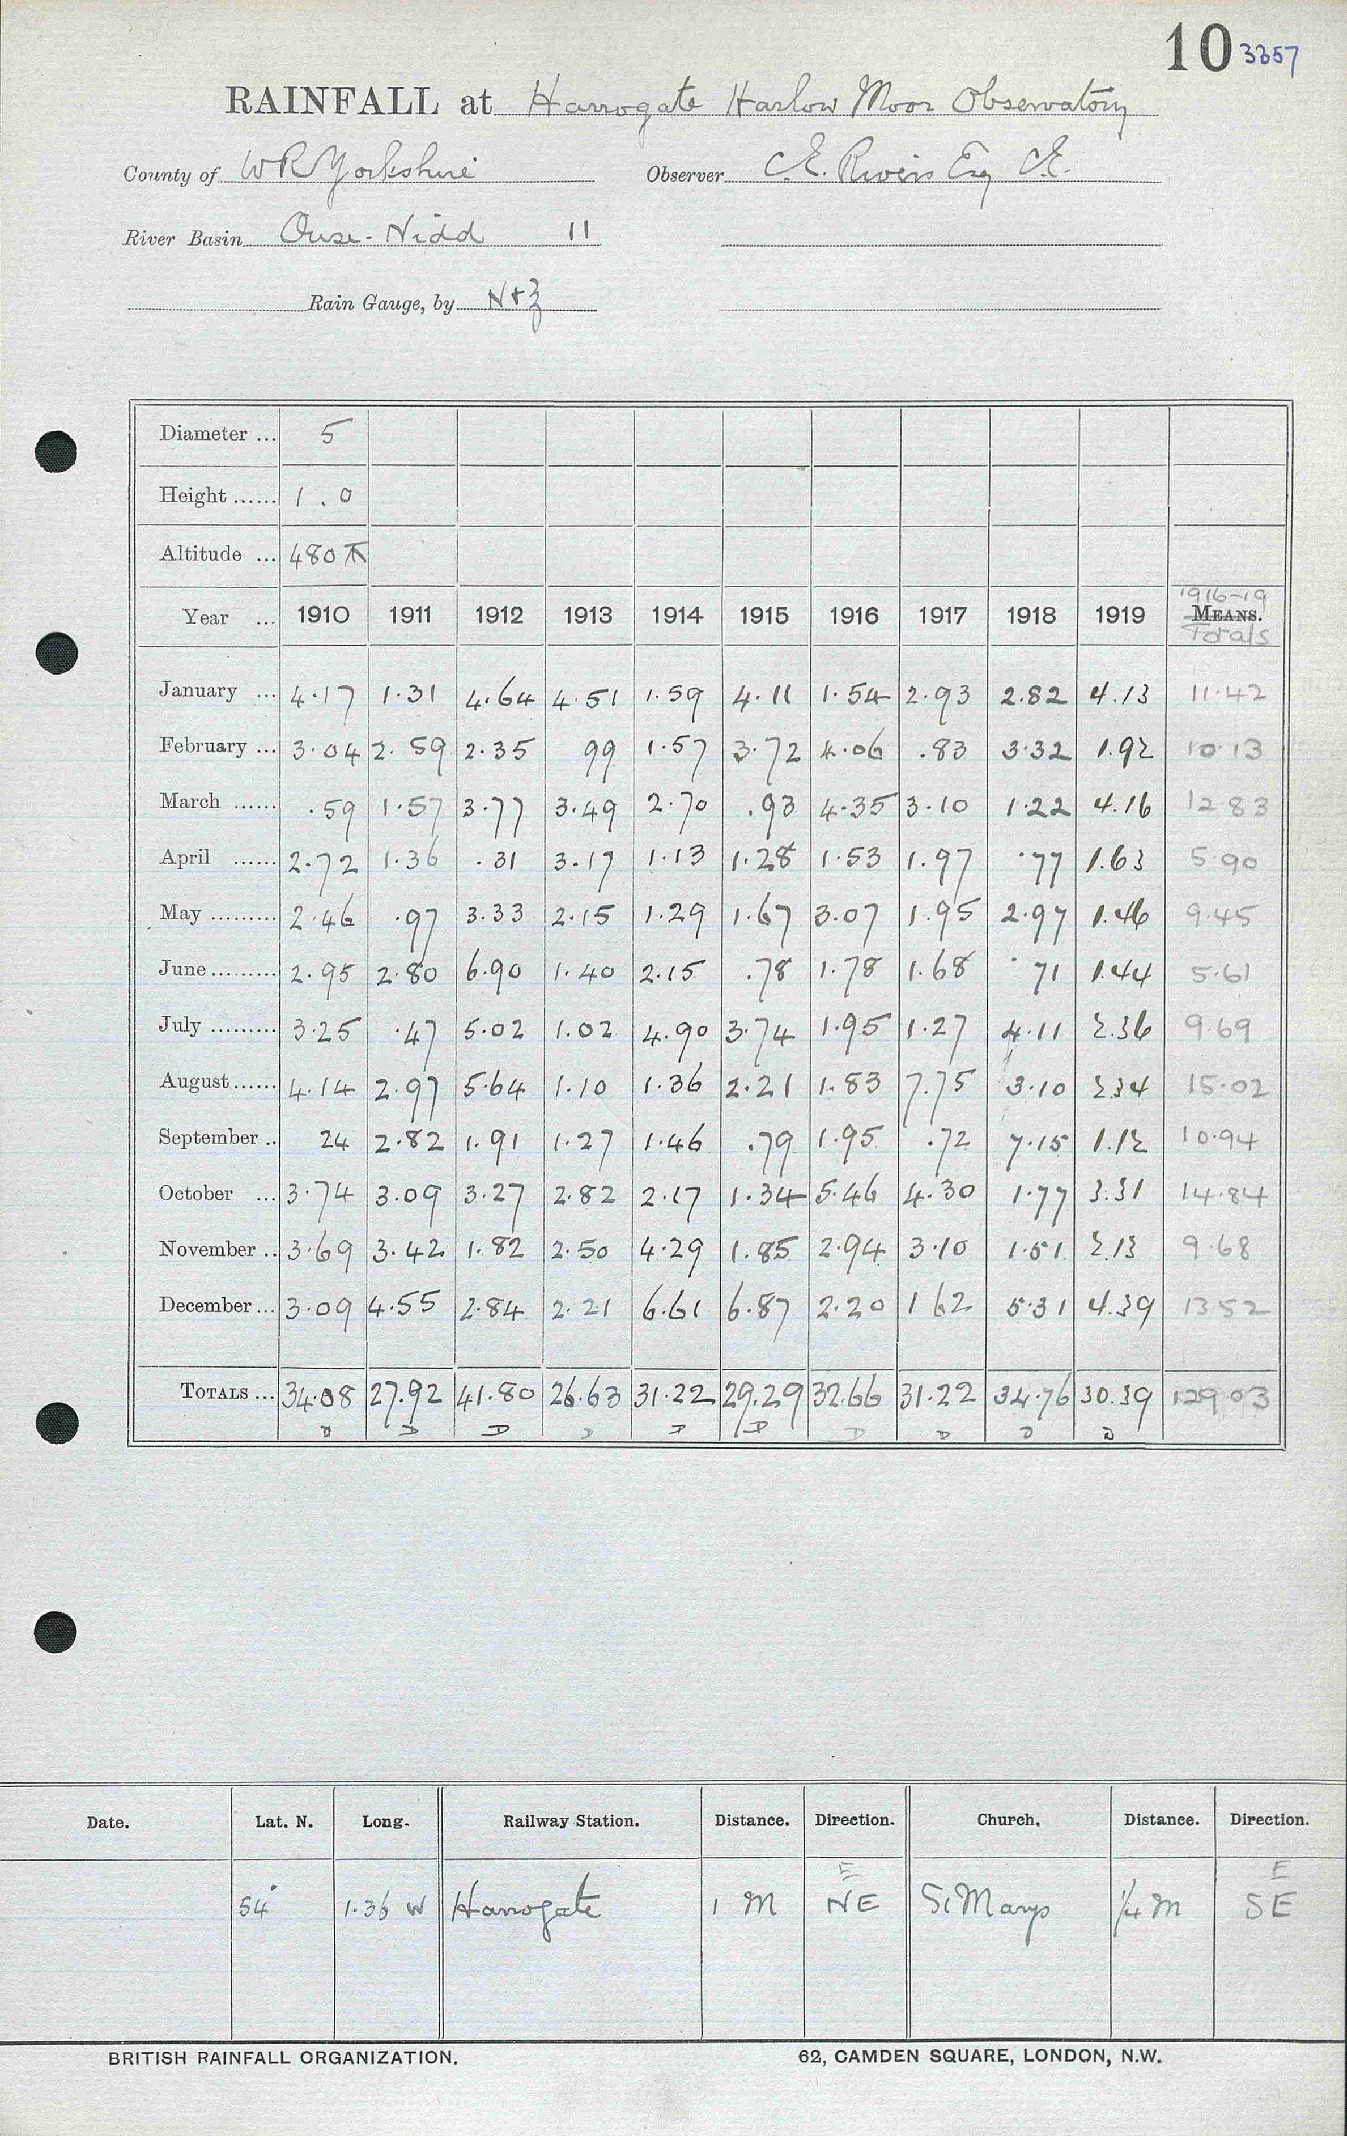 10 3357
RAINFALL at Harrogate Harlow Moor Observatory
County of W R Yorkshire Observer C.E. Rivers Esq C.E.
River Basin Ouse-Nidd 11
Rain Gauge, by N+Z
Diameter ... 5
Height ...... 1.0
Altitude ... 480
1916-19
Year ... 1910 1911 1912 1913 1914 1915 1916 1917 1918 1919 MEANS.
Totals
January ... 4.17 1.31 4.64 4.51 1.59 4.11 1.54 2.93 2.82 4.13 11.42
February ... 3.04 2.59 2.35 99 1.57 3.72 4.06 .83 3.32 1.92 10.13
March ...... .59 1.57 3.77 3.49 2.70 .93 4.35 3.10 1.22 4.16 12.83
April ...... 2.72 1.36 .31 3.17 1.13 1.28 1.53 1.97 .77 1.63 5.90
May ......... 2.46 .97 3.33 2.15 1.29 1.67 3.07 1.95 2.97 1.46 9.45
June ......... 2.95 2.80 6.90 1.40 2.15 .78 1.78 1.68 .71 1.44 5.61
July ......... 3.25 .47 5.02 1.02 4.90 3.74 1.95 1.27 4.11 2.36 9.69
August ...... 4.14 2.97 5.64 1.10 1.36 2.21 1.83 7.75 3.10 2.34 15.02
September .. 24 2.82 1.91 1.27 1.46 .79 1.95 .72 7.15 1.12 10.94
October ... 3.74 3.09 3.27 2.82 2.17 1.34 5.46 4.30 1.77 3.31 14.84
November .. 3.69 3.42 1.82 2.50 4.29 1.85 2.94 3.10 1.51 2.13 9.68
December ... 3.09 4.55 2.84 2.21 6.61 6.87 2.20 1 62 5.31 4.39 13.52
TOTALS ... 34.08 27.92 41.80 26.63 31.22 29.29 32.66 31.22 34.76 30.39 129.03
D D D D D D D D D D
Date. Lat. N. Long. Railway Station. Distance. Direction. Church. Distance. Direction.
E E
54° 1.36 W Harrogate 1 M NE St Marys 1/4 M SE
BRITISH RAINFALL ORGANIZATION. 62, CAMDEN SQUARE, LONDON, N.W.